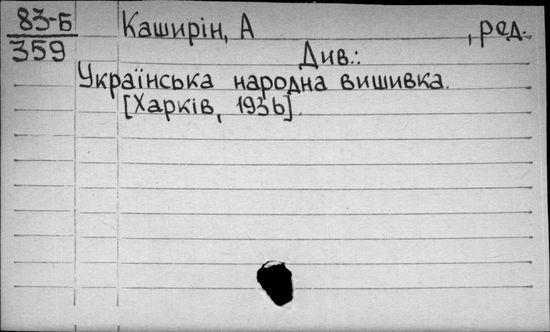 83-Б
359
Каширін, А , ред.
Див.:
Українська народна вишивка.
[Харків, 1936].